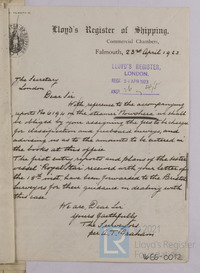 Lloyd's Register of Shipping,
Commercial Chambers,
Falmouth, 23rd April 1923
LLOYD'S REGISTER,
LONDON
The Secretary
London
Dear Sir
With reference to the accompanying
report No 4194 on the steamer we shall
be obliged by your assigning the fees to charge
for classification and purposes surveys, and
advising us as to the amounts to be entered in
the books at this office.
The first entry report and plans of the sister
vessel Royal Star received with your letter of
the 18th inst have been forwarded to the
Surveyors for their guidance in dealing with
this case.
We are, Dear Sir
Yours faithfully
The Surveyors
per
Lloyd's Register
Foundation